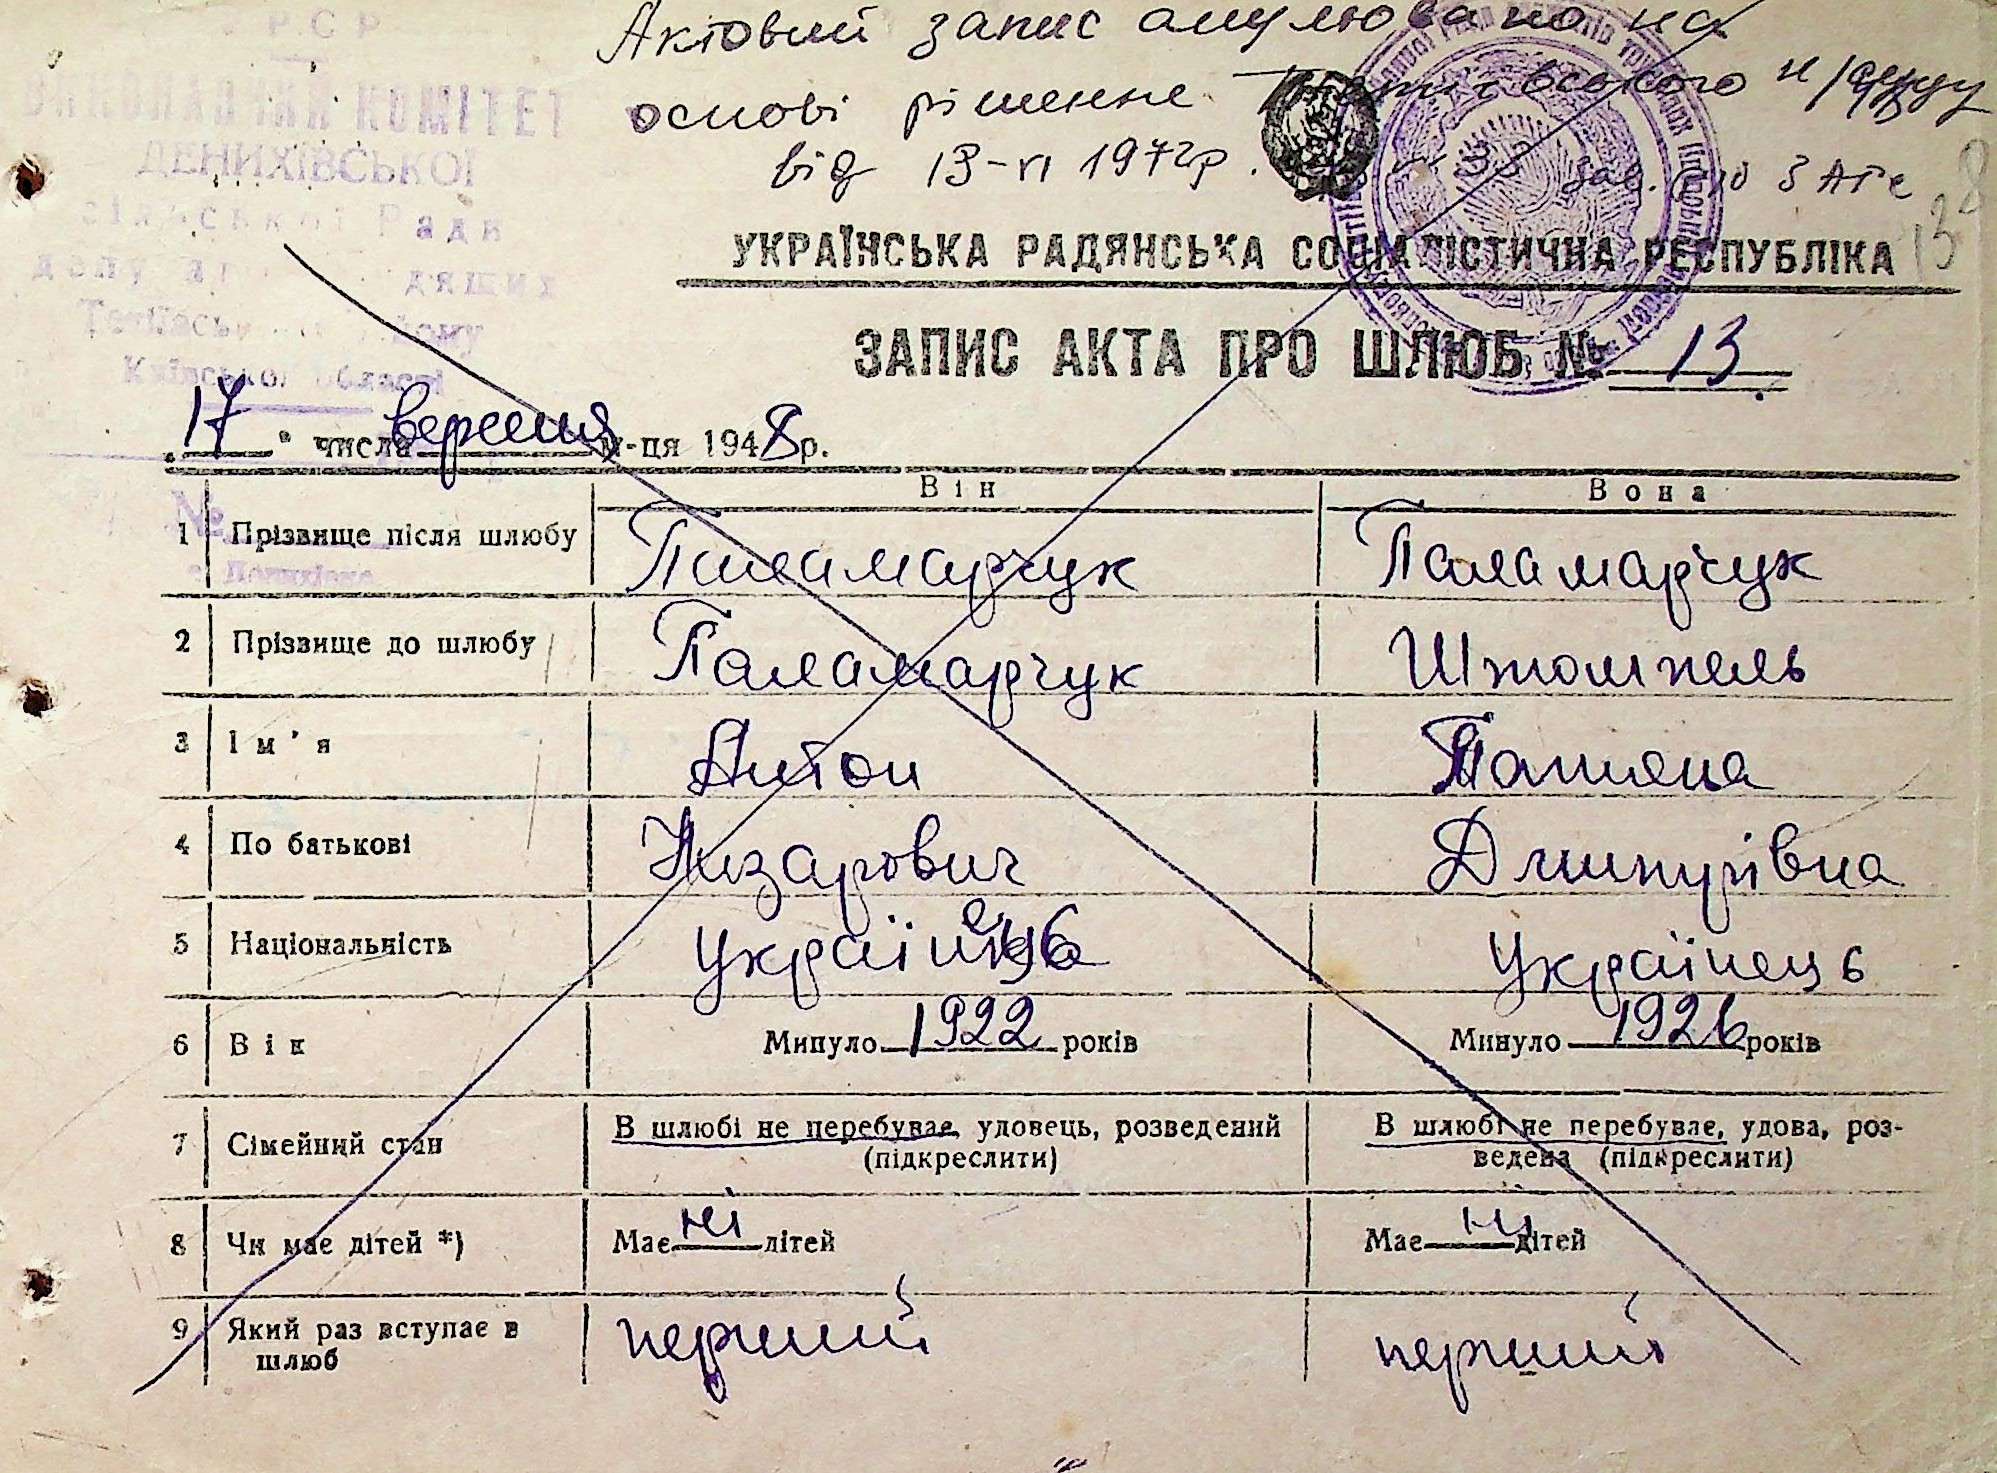 Актовий запис анулювано на
основі рішення Тетіївського н/суду
від 13-VI 1972р. зав. бюро ЗАГС
РСР
ВИКОНАВЧИЙ КОМІТЕТ
ДЕНИХІВСЬКОЇ
сільської Ради
Київської області
№
с. Денихівка
УКРАЇНСЬКА РАДЯНСЬКА СОЦІАЛІСТИЧНА РЕСПУБЛІКА
ЗАПИС АКТА ПРО ШЛЮБ № 13
17 числа вересня м-ця 1948 р.
Він Вона
1 Прізвище після шлюбу Паламарчук Паламарчук
2 Прізвище до шлюбу Паламарчук Штомпель
3 Ім'я Антон Татияна
4 По батькові Назарович Дмитрівна
5 Національність українець Українець
6 Вік Минуло 1922 років Минуло 1926 років
7 Сімейний стан В шлюбі не перебуває, удовець, розведений В шлюбі не перебуває, удова, роз-
(підкреслити) ведена (підкреслити)
8 Чи має дітей *) Має ні дітей Має ні дітей
9 Який раз вступає в перший перший
шлюб